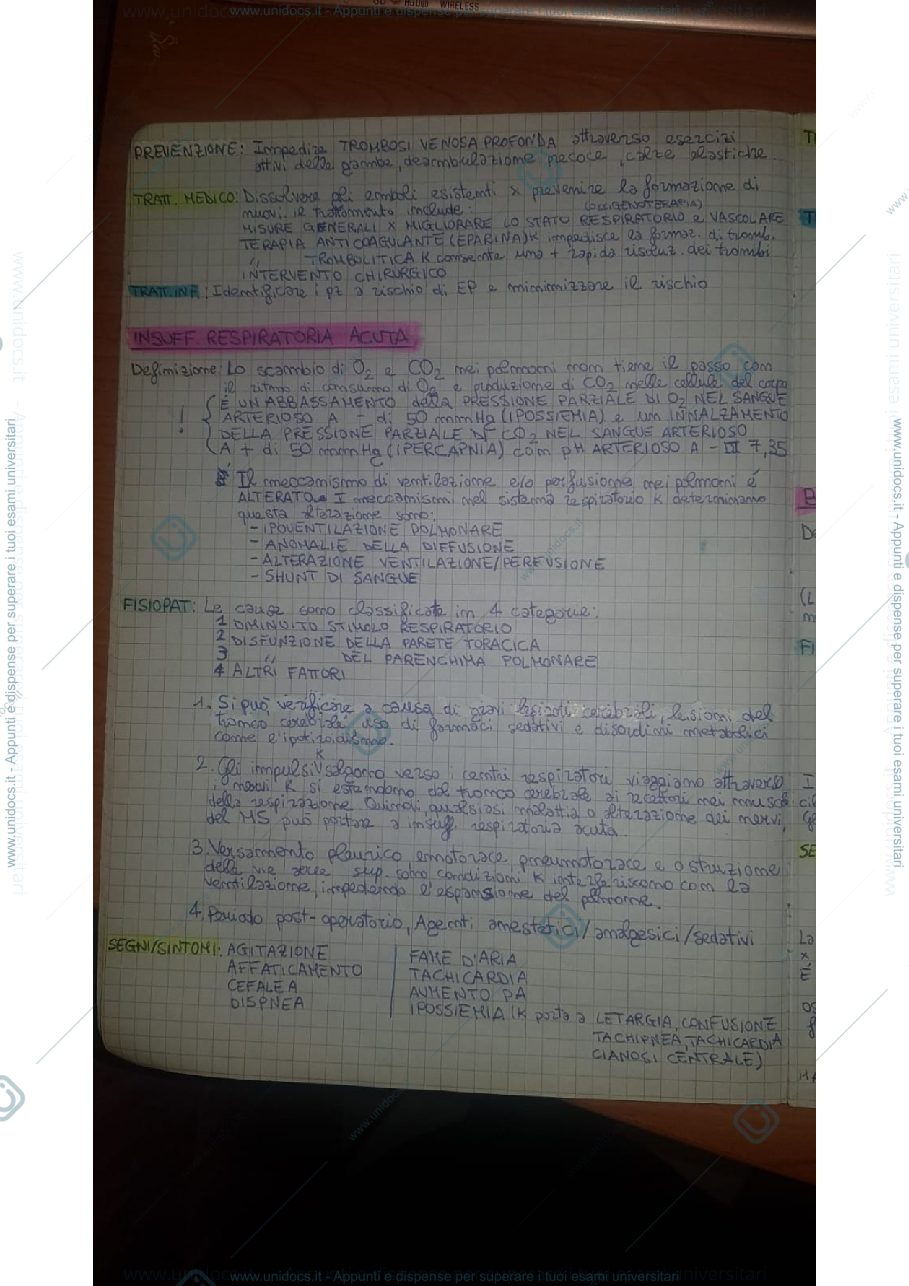 www.unidocs.it - Appunti e dispense per superare i tuoi esami universitari
WIRELESS
PREVENZIONE: Impedire TROMBOSI VENOSA PROFONDA attraverso esercizi
attivi delle gambe, deambulazione precoce, calze elastiche.
TRATT. MEDICO: Dissolvere gli emboli esistenti x prevenire la formazione di
nuovi. il trattamento include: (OSSIGENOTERAPIA)
MISURE GENERALI X MIGLIORARE LO STATO RESPIRATORIO e VASCOLARE
TERAPIA ANTICOAGULANTE (EPARINA) K impedisce la formaz. di tromb.
" TROMBOLITICA K consente una + rapida risoluz. dei trombi
INTERVENTO CHIRURGICO
TRATT. INF.: Identificare i pz a rischio di EP e minimizzare il rischio
INSUFF. RESPIRATORIA ACUTA
Definizione: Lo scambio di O2 e CO2 nei polmoni non tiene il passo con
il ritmo di consumo di O2 e produzione di CO2 nelle cellule del corpo
! È UN ABBASSAMENTO della PRESSIONE PARZIALE DI O2 NEL SANGUE
ARTERIOSO A - di 50 mmHg (IPOSSIEMIA) e un INNALZAMENTO
DELLA PRESSIONE PARZIALE DI CO2 NEL SANGUE ARTERIOSO
A + di 50 mmHg (IPERCAPNIA) con pH ARTERIOSO A - DI 7,35
Il meccanismo di ventilazione e/o perfusione nei polmoni è
ALTERATO. I meccanismi nel sistema respiratorio K determinano
questa alterazione sono:
- IPOVENTILAZIONE POLMONARE
- ANOMALIE DELLA DIFFUSIONE
- ALTERAZIONE VENTILAZIONE/PERFUSIONE
- SHUNT DI SANGUE
FISIOPAT: Le cause sono classificate in 4 categorie:
1 DIMINUITO STIMOLO RESPIRATORIO
2 DISFUNZIONE DELLA PARETE TORACICA
3 " DEL PARENCHIMA POLMONARE
4 ALTRI FATTORI
1. Si può verificare a causa di gravi lesioni cerebrali, lesioni del
tronco cerebrale, uso di farmaci sedativi e disordini metabolici
come l'ipotiroidismo.
2. Gli impulsi K salgono verso i centri respiratori viaggiano attraverso
i nervi K si estendono dal tronco cerebrale ai recettori nei muscoli
della respirazione. Quindi, qualsiasi malattia o alterazione dei nervi,
del MS può portare a insuff. respiratoria acuta.
3. Versamento pleurico, emotorace, pneumotorace e ostruzione
delle vie aeree sup. sono condizioni K interferiscono con la
ventilazione, impedendo l'espansione del polmone.
4. Periodo post-operatorio, Agenti anestetici/analgesici/sedativi
SEGNI/SINTOMI: AGITAZIONE
AFFATICAMENTO
CEFALEA
DISPNEA
FAME D'ARIA
TACHICARDIA
AUMENTO PA
IPOSSIEMIA (K porta a LETARGIA, CONFUSIONE
TACHIPNEA, TACHICARDIA
CIANOSI CENTRALE)
www.unidocs.it - Appunti e dispense per superare i tuoi esami universitari
www.unidocs.it - Appunti e dispense per superare i tuoi esami universitari
www.unidocs.it - Appunti e dispense per superare i tuoi esami universitari